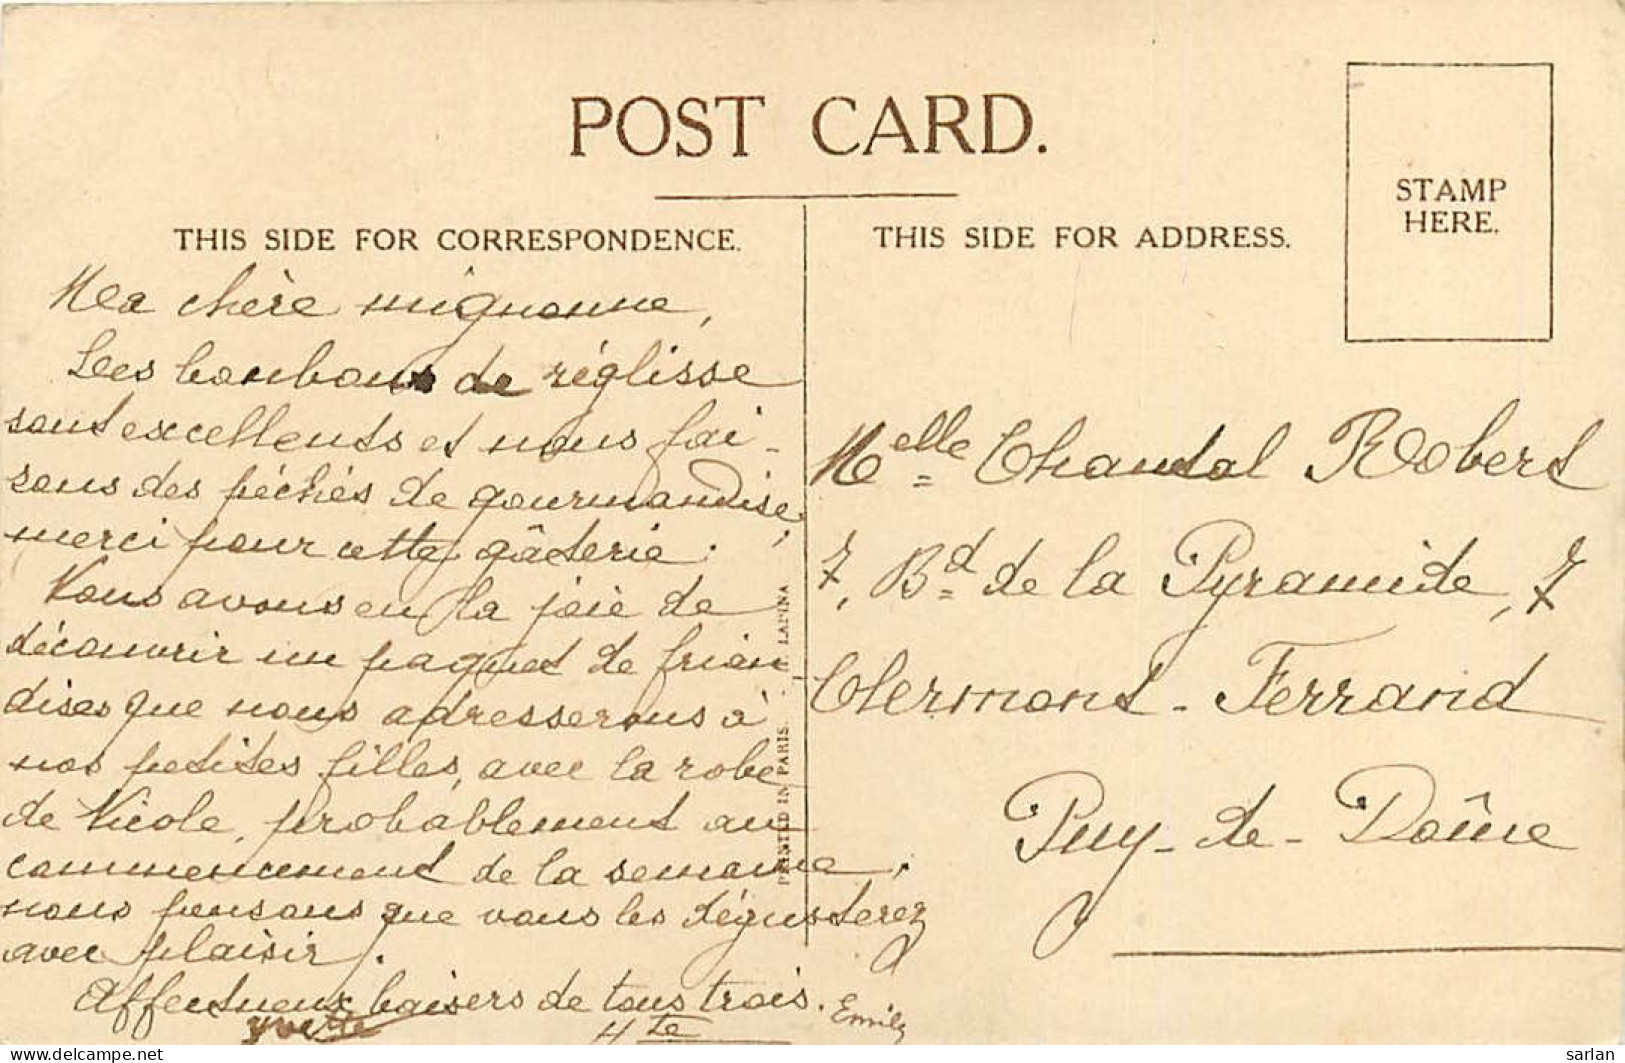 POST CARD.
THIS SIDE FOR CORRESPONDENCE.
THIS SIDE FOR ADDRESS.
STAMP
HERE.
Ma chère mignonne,
Les bonbons de réglisse
sont excellents et nous fai-
sons des péchés de gourmandise,
merci pour cette gâterie.
Nous avons eu la joie de
découvrir un paquet de frian
dises que nous adresserons à
nos petites filles, avec la robe
de Nicole, probablement au
commencement de la semaine,
nous pensons que vous les dégusterez
avec plaisir.
Affectueux baisers de tous trois.
Yvette
Hte
Emily
PRINTED IN PARIS. LAPINA
Melle Chantal Robert
7, Bd de la Pyramide, 7
Clermont-Ferrand
Puy-de-Dôme
delcampe.net
Sarlan